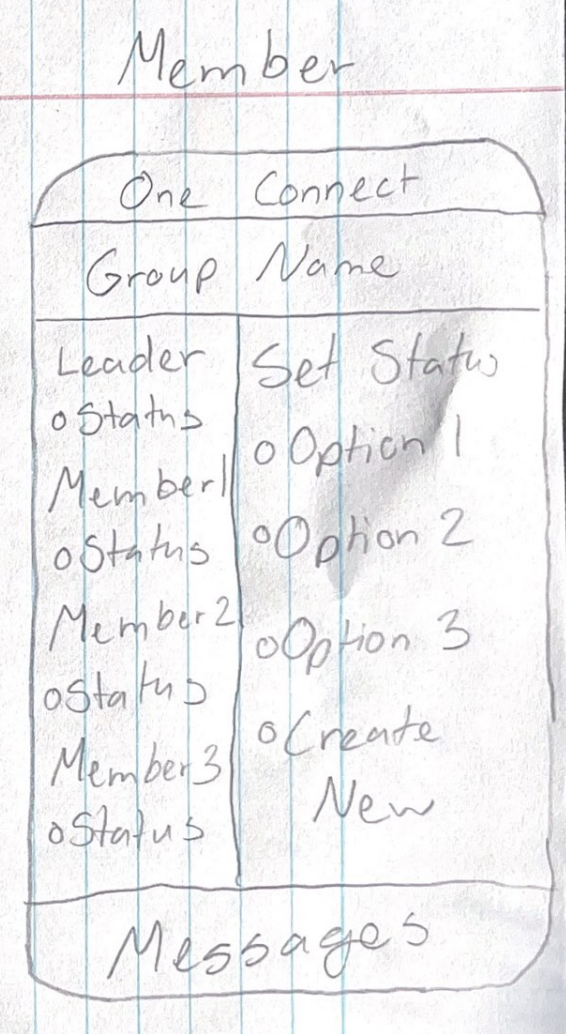 Member
One Connect
Group Name
Leader
o Status
Member1
o Status
Member2
o Status
Member3
o Status
Set Status
o Option 1
o Option 2
o Option 3
o Create
New
Messages